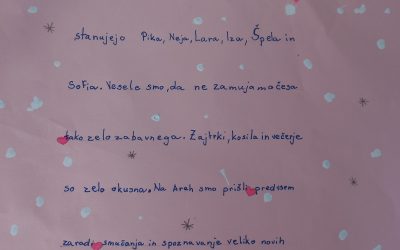 stanujejo Pika, Neja, Lara, Iza, Špela in
Sofia. Vesele smo, da ne zamujamo česa
tako zelo zabavnega. Zajtrki, kosila in večerje
so zelo okusna. Na Areh smo prišli predvsem
zaradi smučanja in spoznavanje veliko novih